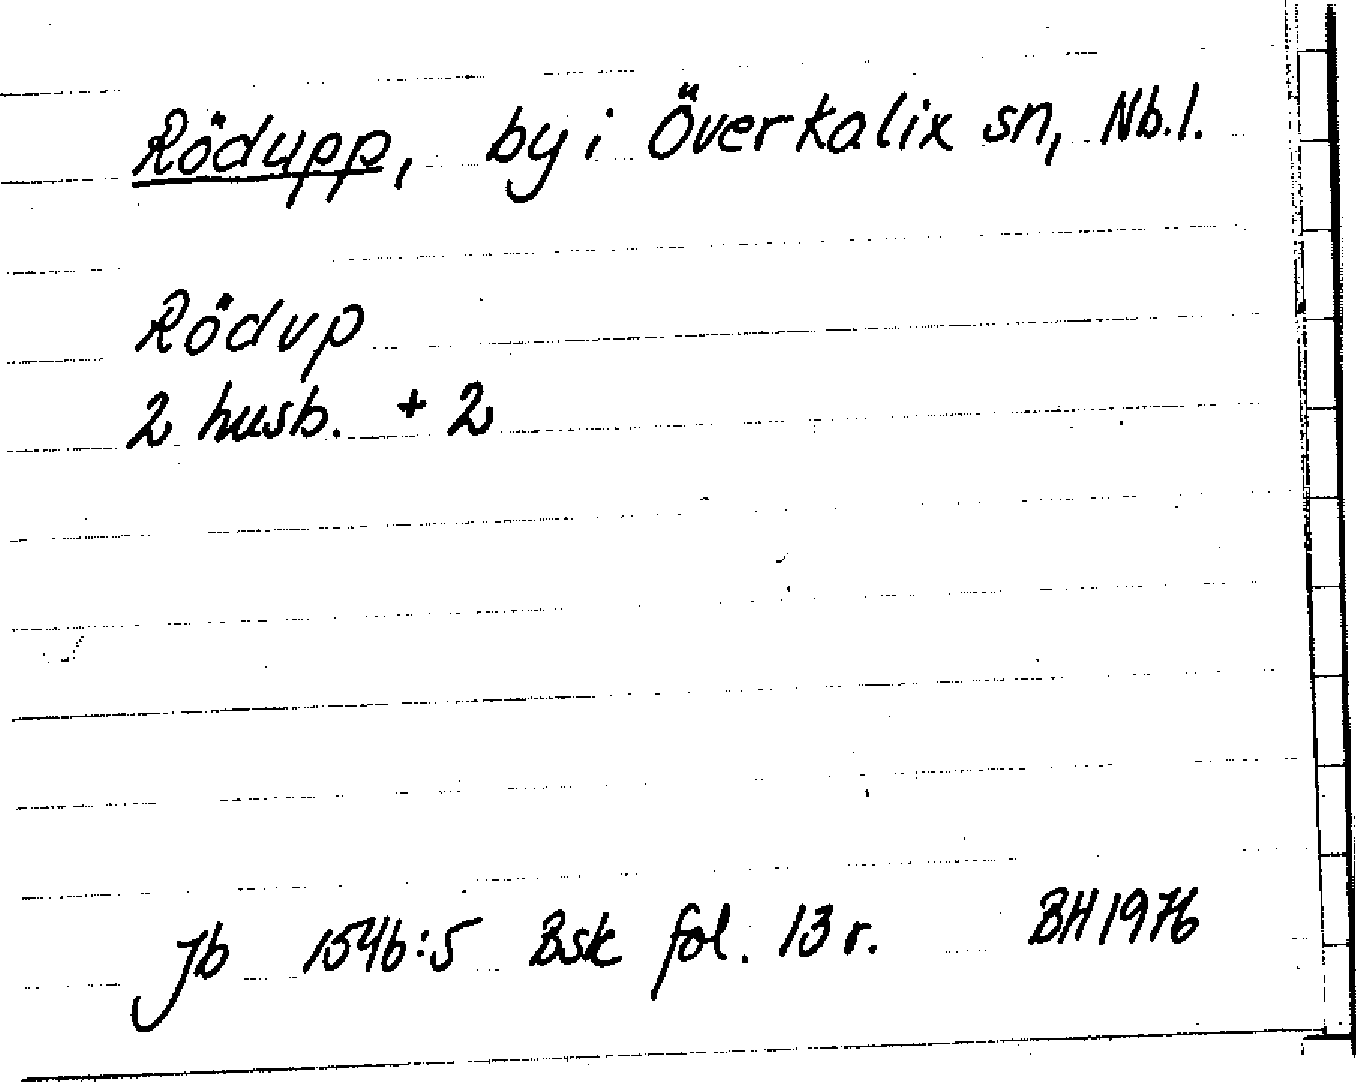 Rödupp, by i Överkalix sn, Nb.l.
Rödvp
2 husb. + 2
Jb 1546:5 Bsk fol. 13 r. BH 1976